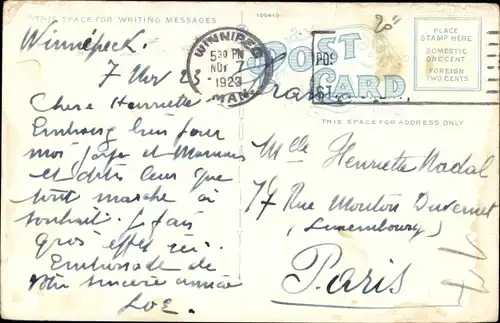 THIS SPACE FOR WRITING MESSAGES
Winnipeck.
7 Nov 23
Chere Henriette
Embrasse bien pour
moi papa et Maman
et dites leur que
tout marche à
souhait. Je fais
gros effet ici.
Embrassade de
votre sincère amie
WINNIPEG
5 30 PM
NOV 7
1923
MAN.
POST
CARD
France
PLACE
STAMP HERE
DOMESTIC
ONE CENT
FOREIGN
TWO CENTS
THIS SPACE FOR ADDRESS ONLY
Mlle Henriette Nadal
17 Rue Mouton Duvernet
(Luxembourg)
Paris